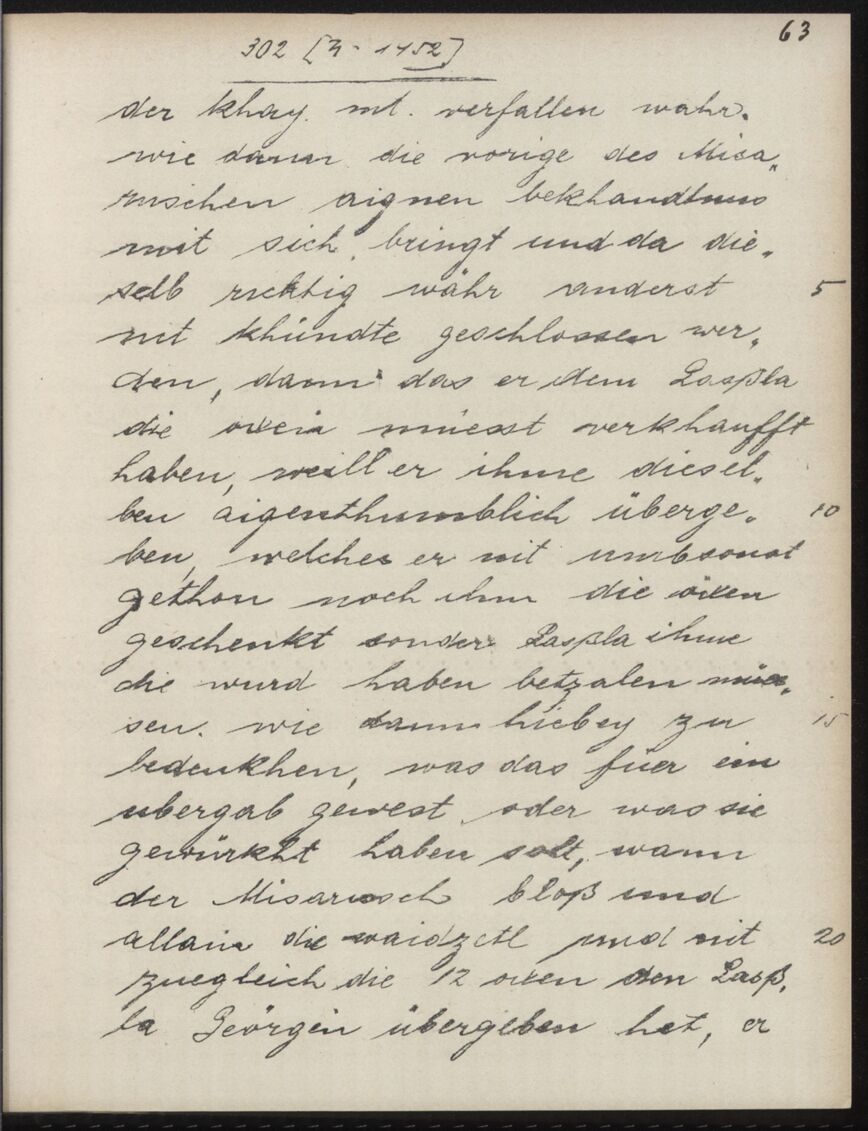 63
302 [4 - 1152]
der khay. mt. verfallen wahr.
wie dann die vorige des Misa„
ruschen aignen bekhandtnus
mit sich bringt und da die„
selb richtig währ anderst
5
nit khündte geschlossen wer„
den, dann das er dem Laßla
die oxen müesst verkhaufft
haben, weill er ihme diesel„
ben aigenthumblich überge„
10
ben, welches er nit umbsonst
gethon noch ihm die oxen
geschenkt sonder Laßla ihme
die wurd haben betzalen müe„
sen. wie dann hiebey zu
15
bedenkhen, was das füer ein
ubergab gewest oder was sie
gewürkht haben solt, wann
der Misarusch bloß und
allain die waidzetl und nit
20
zuegleich die 12 oxen den Laß„
la Geörgen übergeben het, er